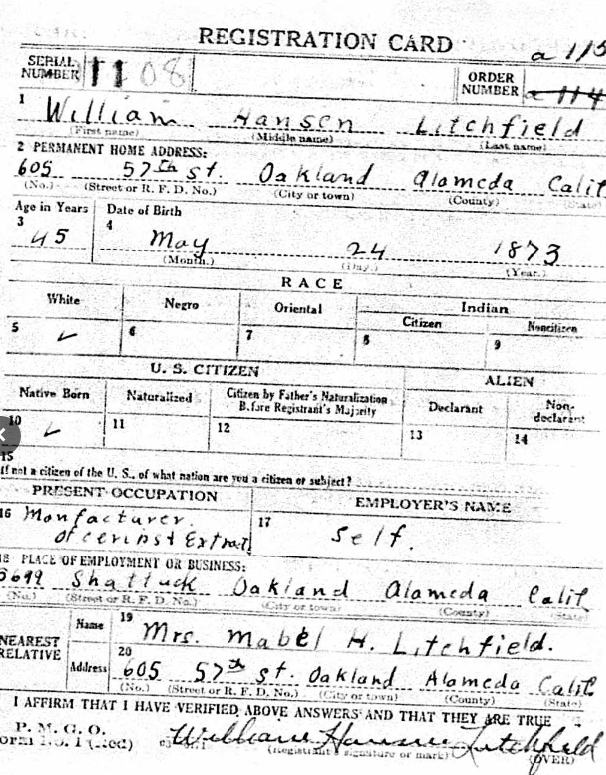 REGISTRATION CARD
a 115
SERIAL NUMBER 1108
ORDER NUMBER a 114
1 William Hansen Litchfield
(First name) (Middle name) (Last name)
2 PERMANENT HOME ADDRESS:
605 57th st. Oakland Alameda Calif
(No.) (Street or R. F. D. No.) (City or town) (County) (State)
Age in Years Date of Birth
3 4
45 May 24 1873
(Month.) (Day.) (Year.)
RACE
White Negro Oriental Indian
Citizen Noncitizen
5 ✓ 6 7 8 9
U. S. CITIZEN ALIEN
Native Born Naturalized Citizen by Father's Naturalization Before Registrant's Majority Declarant Non-declarant
10 ✓ 11 12 13 14
15
If not a citizen of the U. S., of what nation are you a citizen or subject?
PRESENT OCCUPATION EMPLOYER'S NAME
16 Monfacturer 17 Self.
of Extract
18 PLACE OF EMPLOYMENT OR BUSINESS:
Shattuck Oakland Alameda Calif
(No.) (Street or R. F. D. No.) (City or town) (County) (State)
NEAREST RELATIVE
Name 19 Mrs. Mabel H. Litchfield.
Address 20 605 57th st. Oakland Alameda Calif
(No.) (Street or R. F. D. No.) (City or town) (County) (State)
I AFFIRM THAT I HAVE VERIFIED ABOVE ANSWERS AND THAT THEY ARE TRUE
P. M. G. O.
Form No. 1 (Red) William Hansen Litchfield
(Registrant's signature or mark) (OVER)